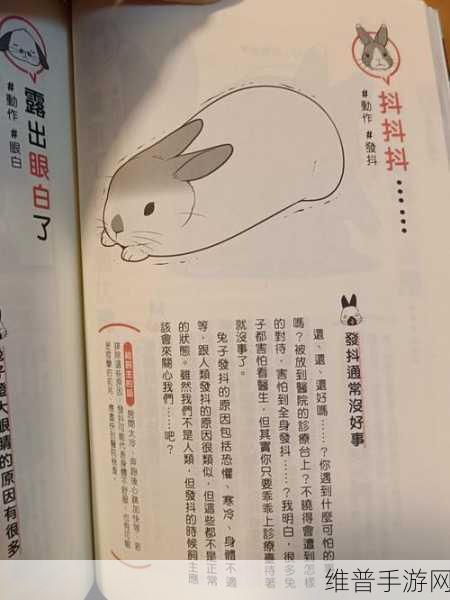 抖抖抖……
#動作 #發抖
發抖通常沒好事
還、還、還好嗎……？你遇到什麼可怕的
嗎？被放到醫院的診療台上？不曉得會遭到怎樣
的對待，害怕到全身發抖……？我明白，很多兔
子都害怕看醫生，但其實你只要乖乖上診療臺待著
就沒事了。
兔子發抖的原因包括恐懼、寒冷、身體不適
等，跟人類發抖的原因很類似，但這些都不是正常
的狀態。雖然我們不是人類，但發抖的時候飼主應
該會來關心我們……吧？
給飼主的話
房間太冷、奔跑後心跳加快等，若
排除這些原因，發抖可能代表身體不舒服，也有可能
露出眼白了
#動作 #眼白
子瞪大眼睛的原因有很多
维普手游网